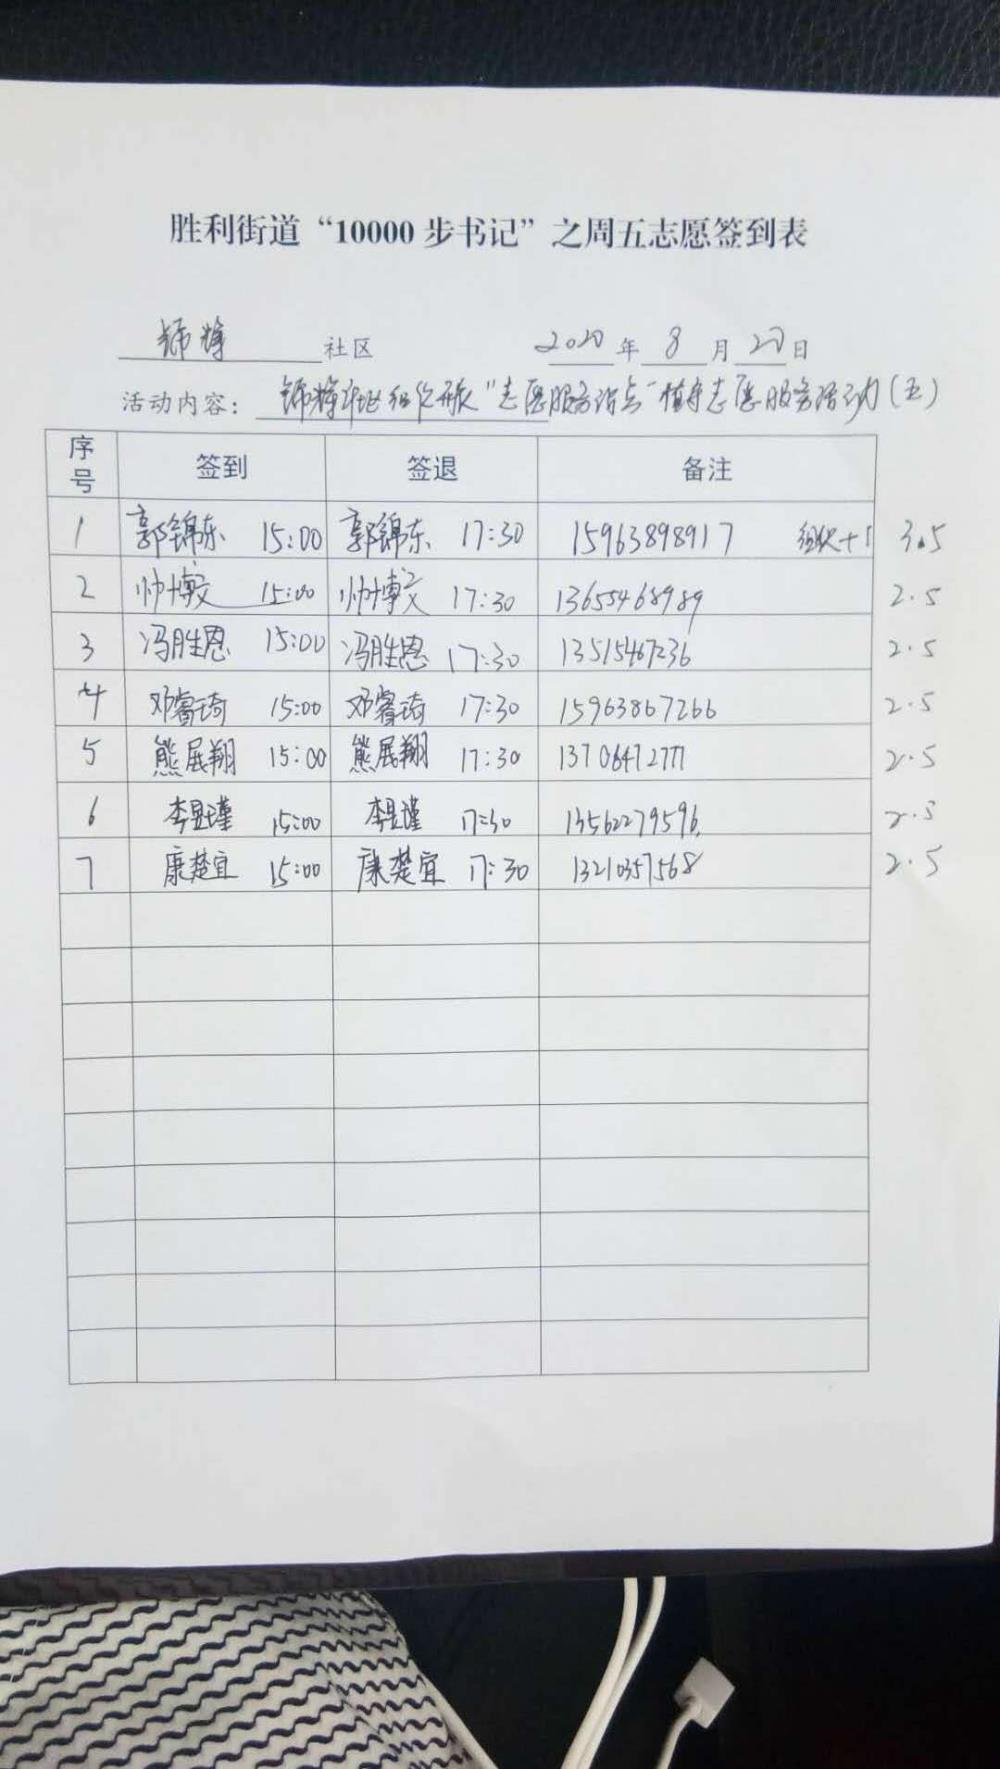 胜利街道“10000步书记”之周五志愿签到表
锦粼 社区 2020年 8月 20日
活动内容: “志愿服务站点”值守志愿服务活动(五)
序号 签到 签退 备注
1 郭锦东 15:00 郭锦东 17:30 15963898917 组织+1 3.5
2 帅博文 15:00 帅博文 17:30 13655468989 2.5
3 冯胜恩 15:00 冯胜恩 17:30 13515467236 2.5
4 邓睿琦 15:00 邓睿琦 17:30 15963867266 2.5
5 熊展翔 15:00 熊展翔 17:30 13706472777 2.5
6 李昱瑾 15:00 李昱瑾 17:30 13562279596 2.5
7 康楚宜 15:00 康楚宜 17:30 13210357568 2.5